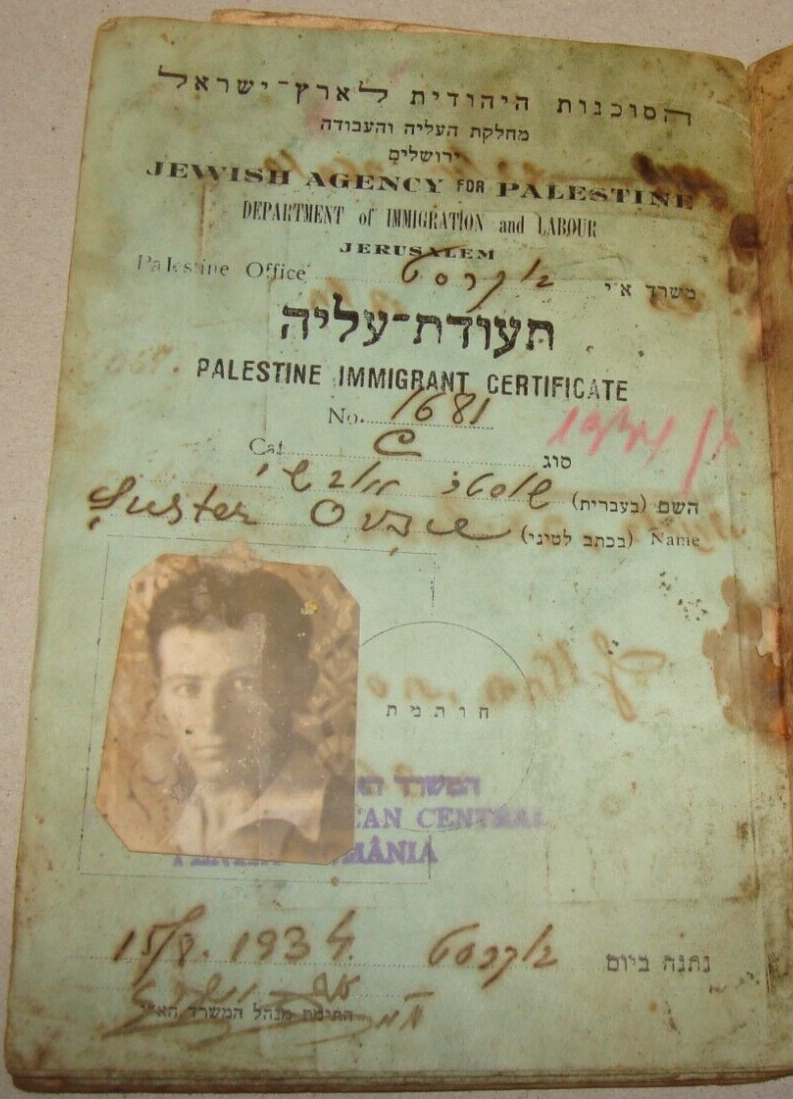 הסוכנות היהודית לארץ־ישראל
מחלקת העליה והעבודה
ירושלים
JEWISH AGENCY FOR PALESTINE
DEPARTMENT of IMMIGRATION and LABOUR
JERUSALEM
Palestine Office בוקרסט משרד א"י
תעודת־עליה
PALESTINE IMMIGRANT CERTIFICATE
No. 1681
Cat. C סוג
השם (בעברית) שוסטר
Şuster (בכתב לטיני) Name
חותמת
המשרד
CENTRAL
ROMÂNIA
נתנה ביום בוקרסט 15/8. 1934
חתימת מנהל המשרד הא"י